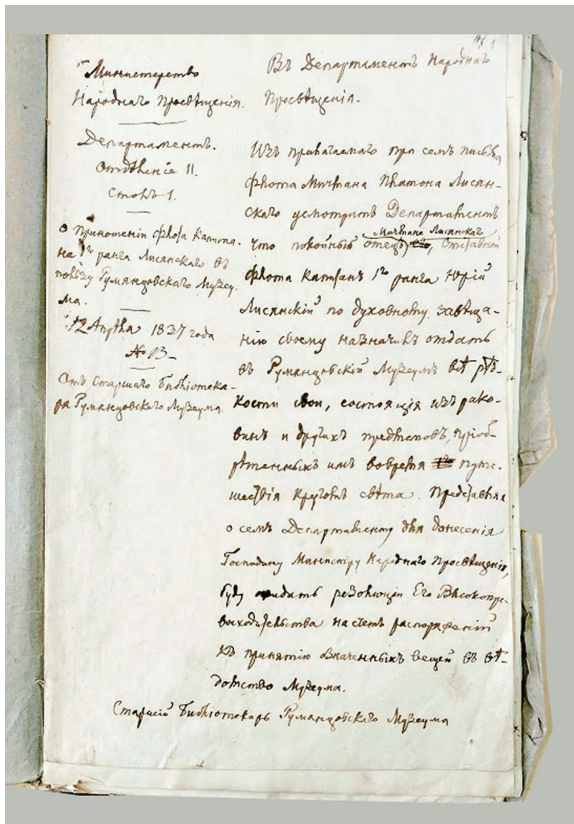 Министерство
Народнаго Просвѣщенія.
Департаментъ.
Отдѣленіе II.
Столъ 1.
О приношеніи флота капитана
1го ранга Лисянскаго въ
пользу Румянцовскаго Музеу-
ма.
12 Апрѣля 1837 года
№ 13
Отъ Старшаго Библіотека-
ря Румянцовскаго Музеума.
Въ Департаментъ Народнаго
Просвѣщенія.
Изъ прилагаемаго при семъ письма
флота Мичмана Платона Лисян-
скаго усмотритъ Департаментъ
Мичмана Лисянскаго
что покойный отецъ его, отставной
флота капитанъ 1го ранга Юрій
Лисянскій по духовному завѣща-
нію своему назначилъ отдать
въ Румянцовскій Музеумъ всѣ рѣд-
кости свои, состоящія изъ рако-
винъ и другихъ предметовъ, пріоб-
рѣтенныхъ имъ вовремя путе-
шествія кругомъ свѣта. Представляя
о семъ Департаменту для донесенія
Господину Министру Народнаго Просвѣщенія,
буду ожидать резолюціи Его Высокопре-
восходительства насчетъ распоряженій
къ принятію означенныхъ вещей въ вѣ-
домство Музеума.
Старшій Библіотекарь Румянцовскаго Музеума